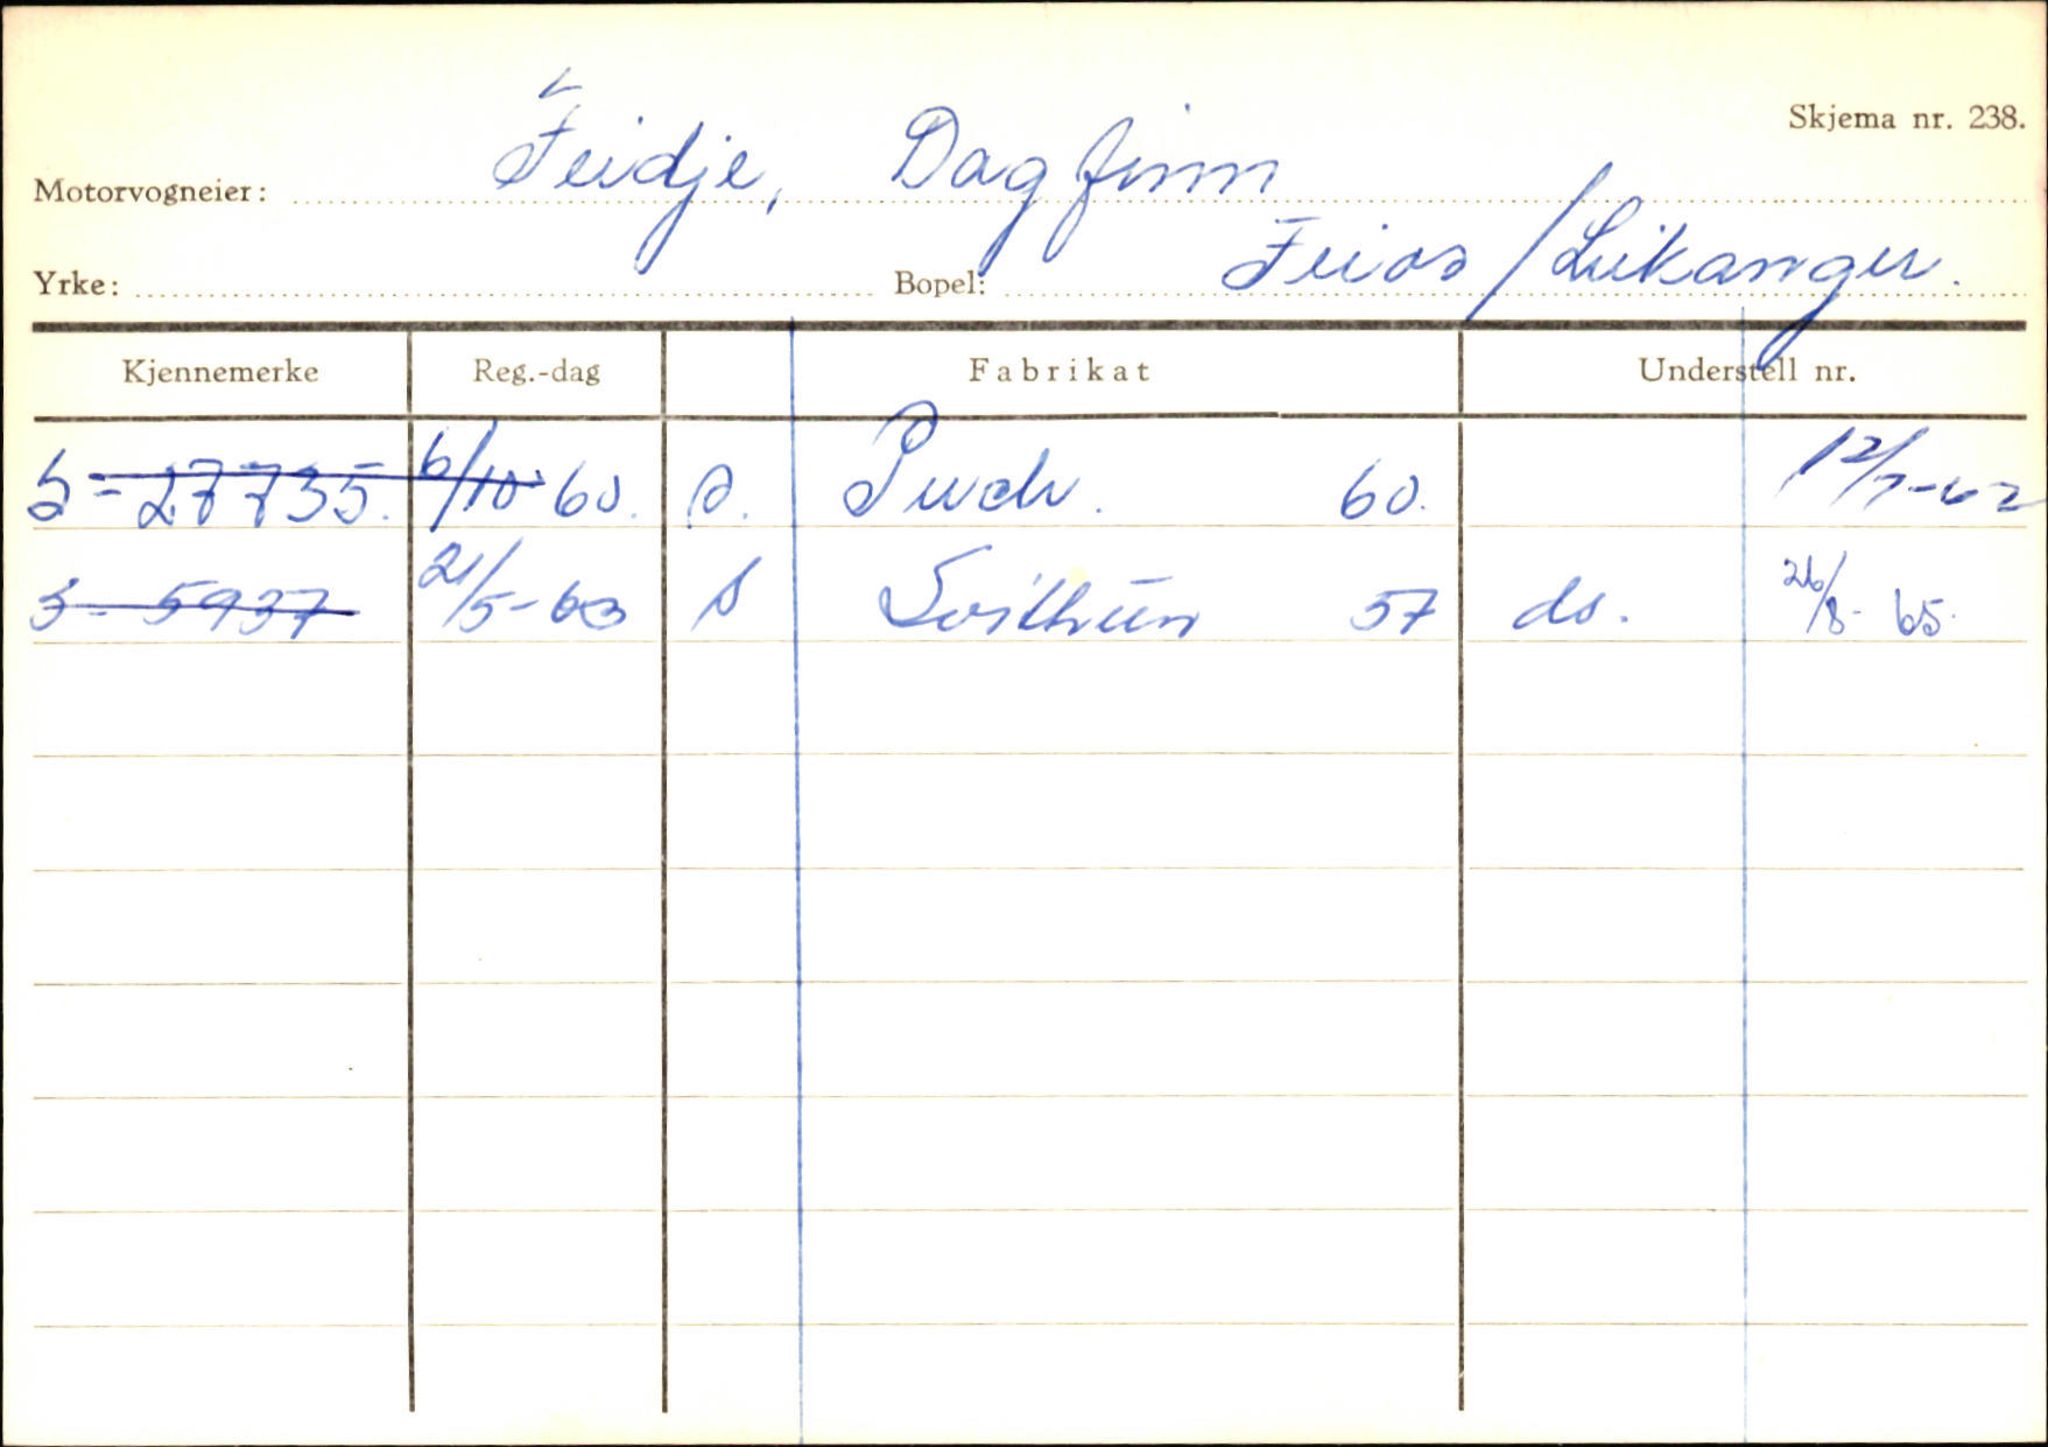 Skjema nr. 238.
Motorvogneier: Feidje, Dagfinn
Yrke: Bopel: Feios / Leikanger.
Kjennemerke Reg.-dag Fabrikat Understell nr.
S-27735. 6/10 60. s. Puch. 60. 12/7-62
S-5937 21/5-63 s Svithun 57 ds. 26/8-65.